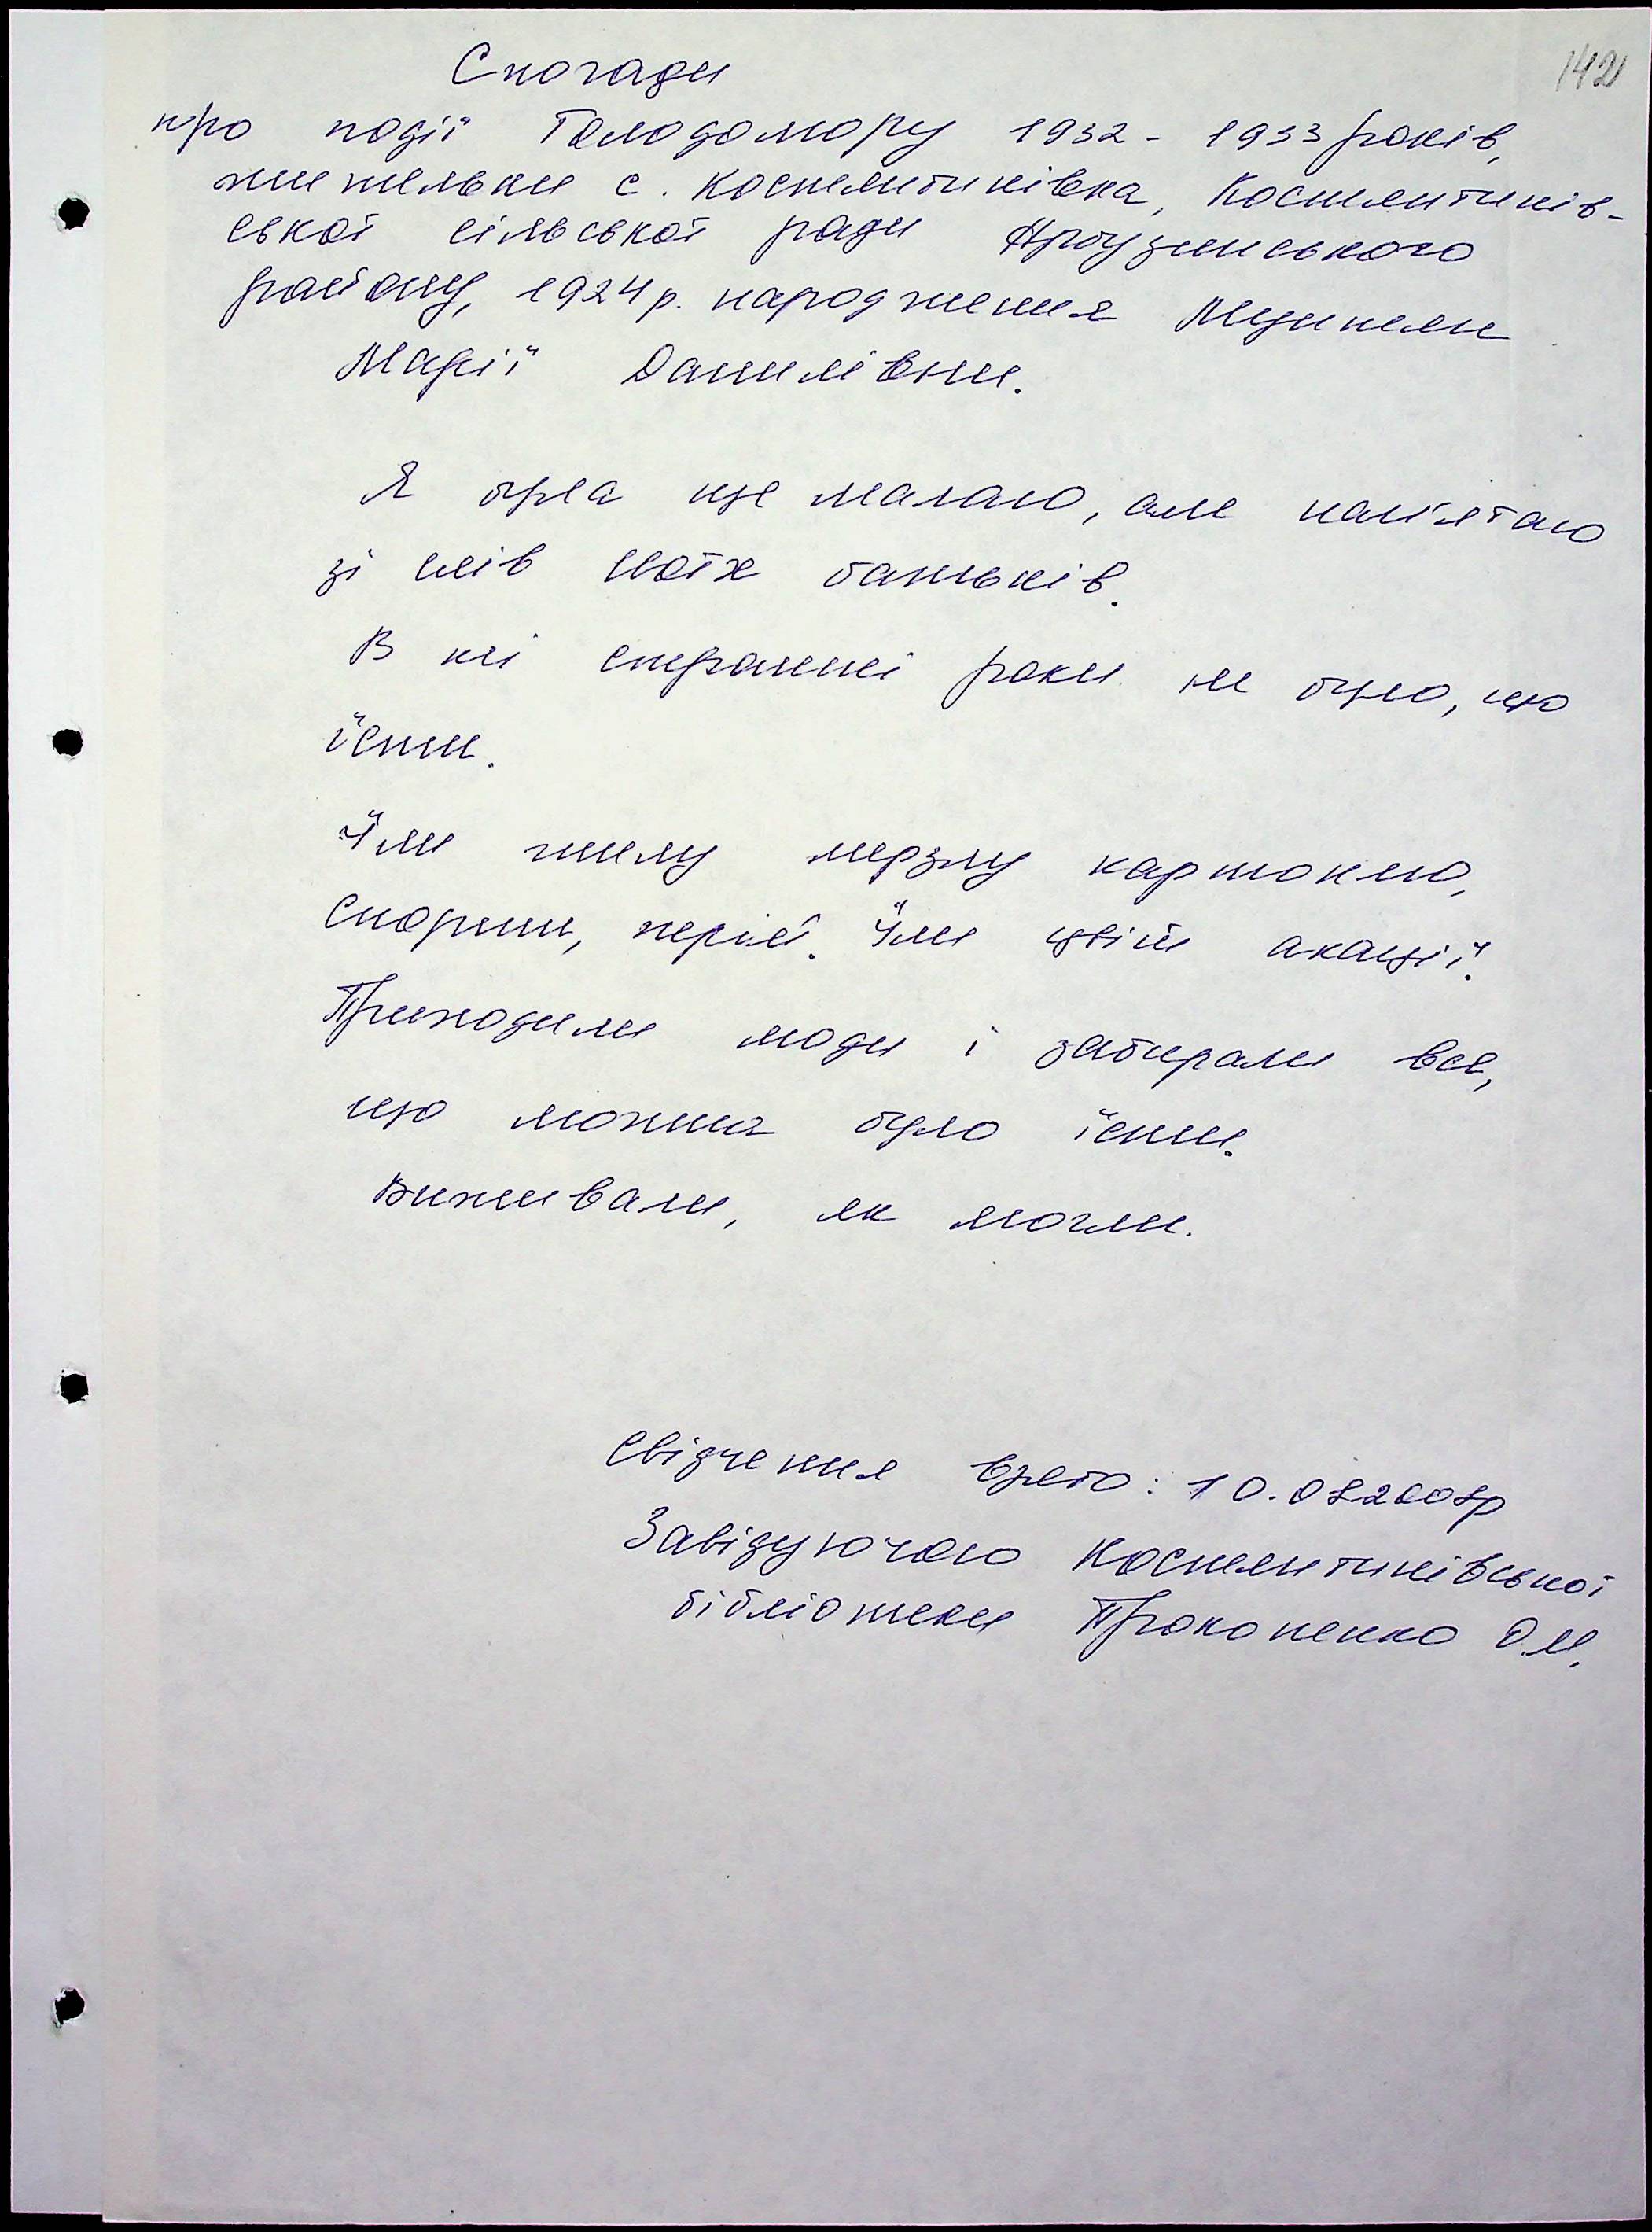 142
Спогади
про події Голодомору 1932 - 1933 років,
жительки с. Костянтинівка, Костянтинів-
ської сільської ради Арбузинського
району, 1924 р. народження
Марії Данилівни.
Я була ще малою, але пам'ятаю
зі слів своїх батьків.
В ці страшні роки не було, що
їсти.
Їли гнилу мерзлу картоплю,
спориш, пирій. Їли цвіт акації.
Приходили люди і забирали все,
що можна було їсти.
Виживали, як могли.
Свідчення взято: 10.08 2008р
Завідуючою Костянтинівської
бібліотеки Прокопенко О.М.